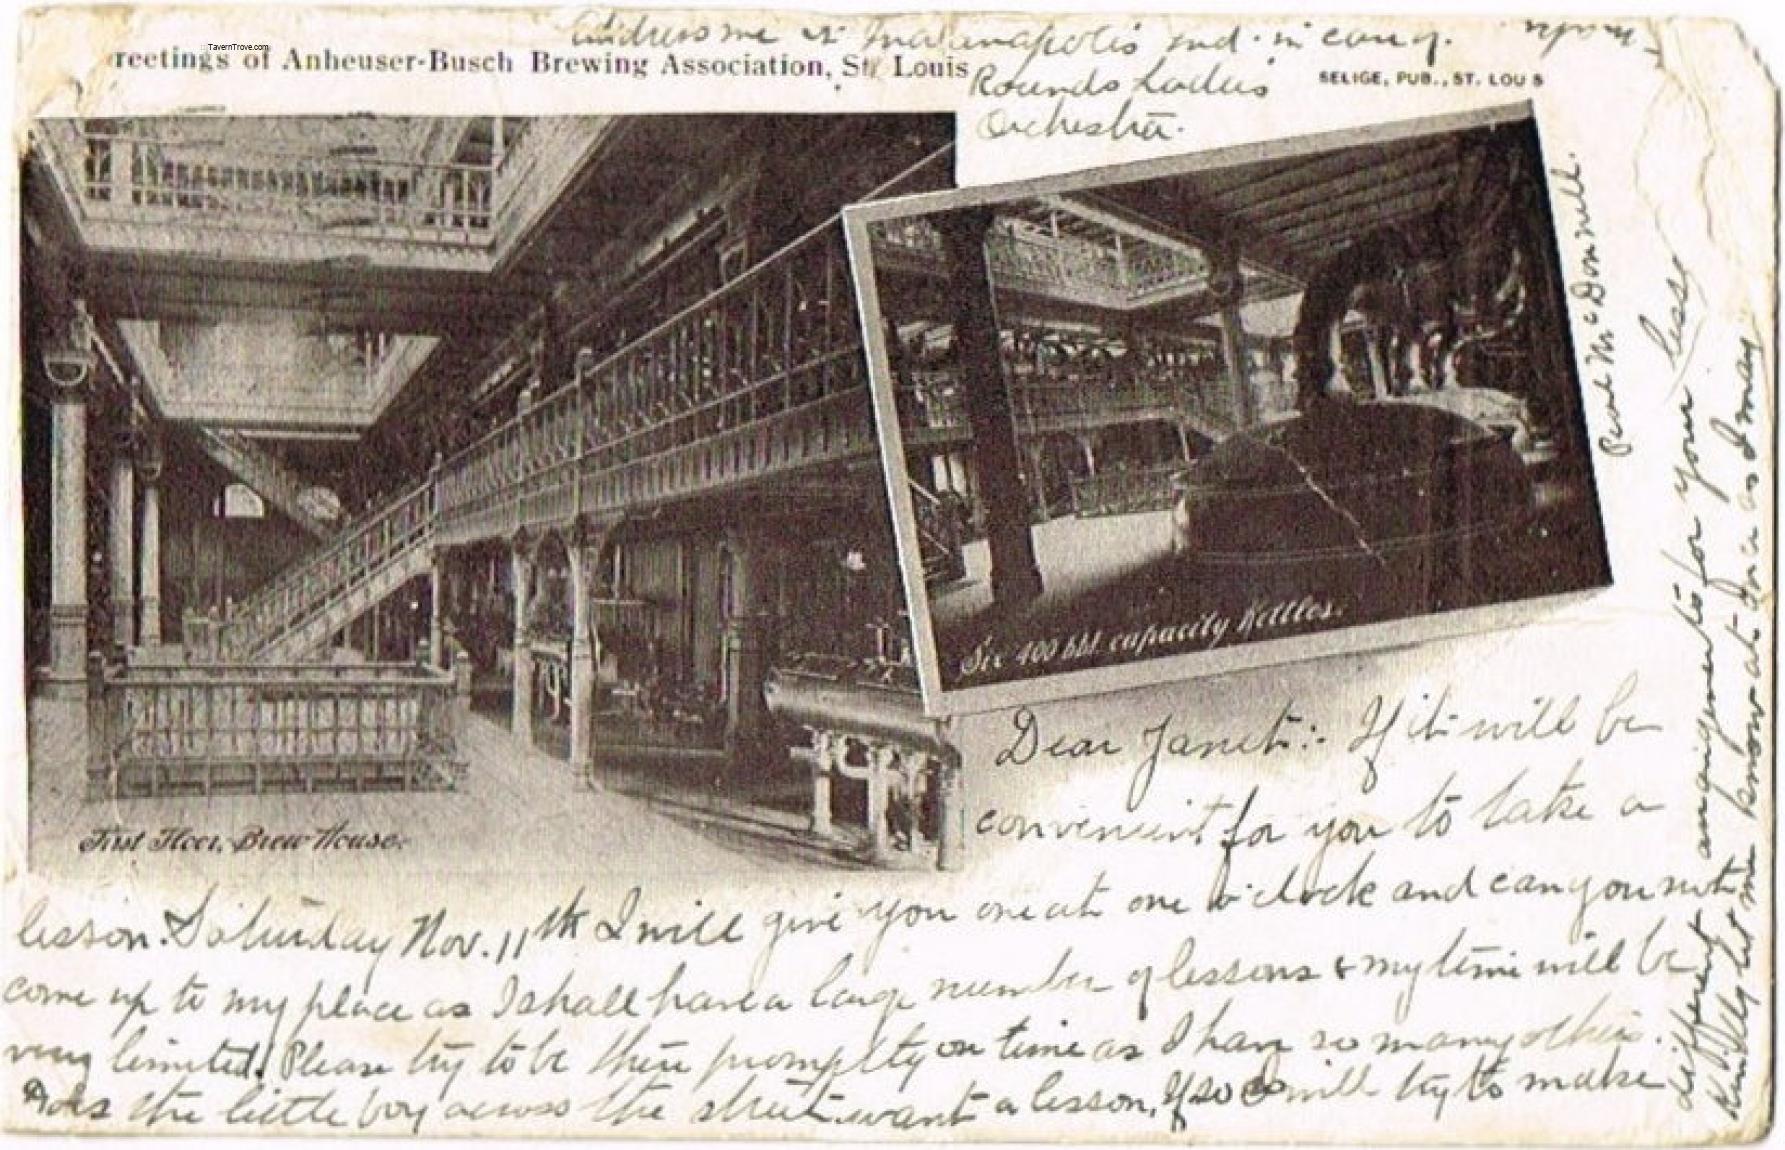 TavernTrove.com
Address me at Indianapolis Ind. in care of.
reetings of Anheuser-Busch Brewing Association, St. Louis
Rounds Ladies
Orchestra.
SELIGE, PUB., ST. LOUIS
Pearl McDonnell.
First Floor, Brew House.
Six 400 bbl. capacity Kettles.
Dear Janet:- If it will be
convenient for you to take a
lesson. Saturday Nov. 11th I will give you one at one o'clock and can you not
come up to my place as I shall have a large number of lessons & my time will be
very limited. Please try to be there promptly on time as I have so many others.
Does the little boy across the street want a lesson, If so I will try to make
different arrangements for your less
Kindly let me know at once as I may